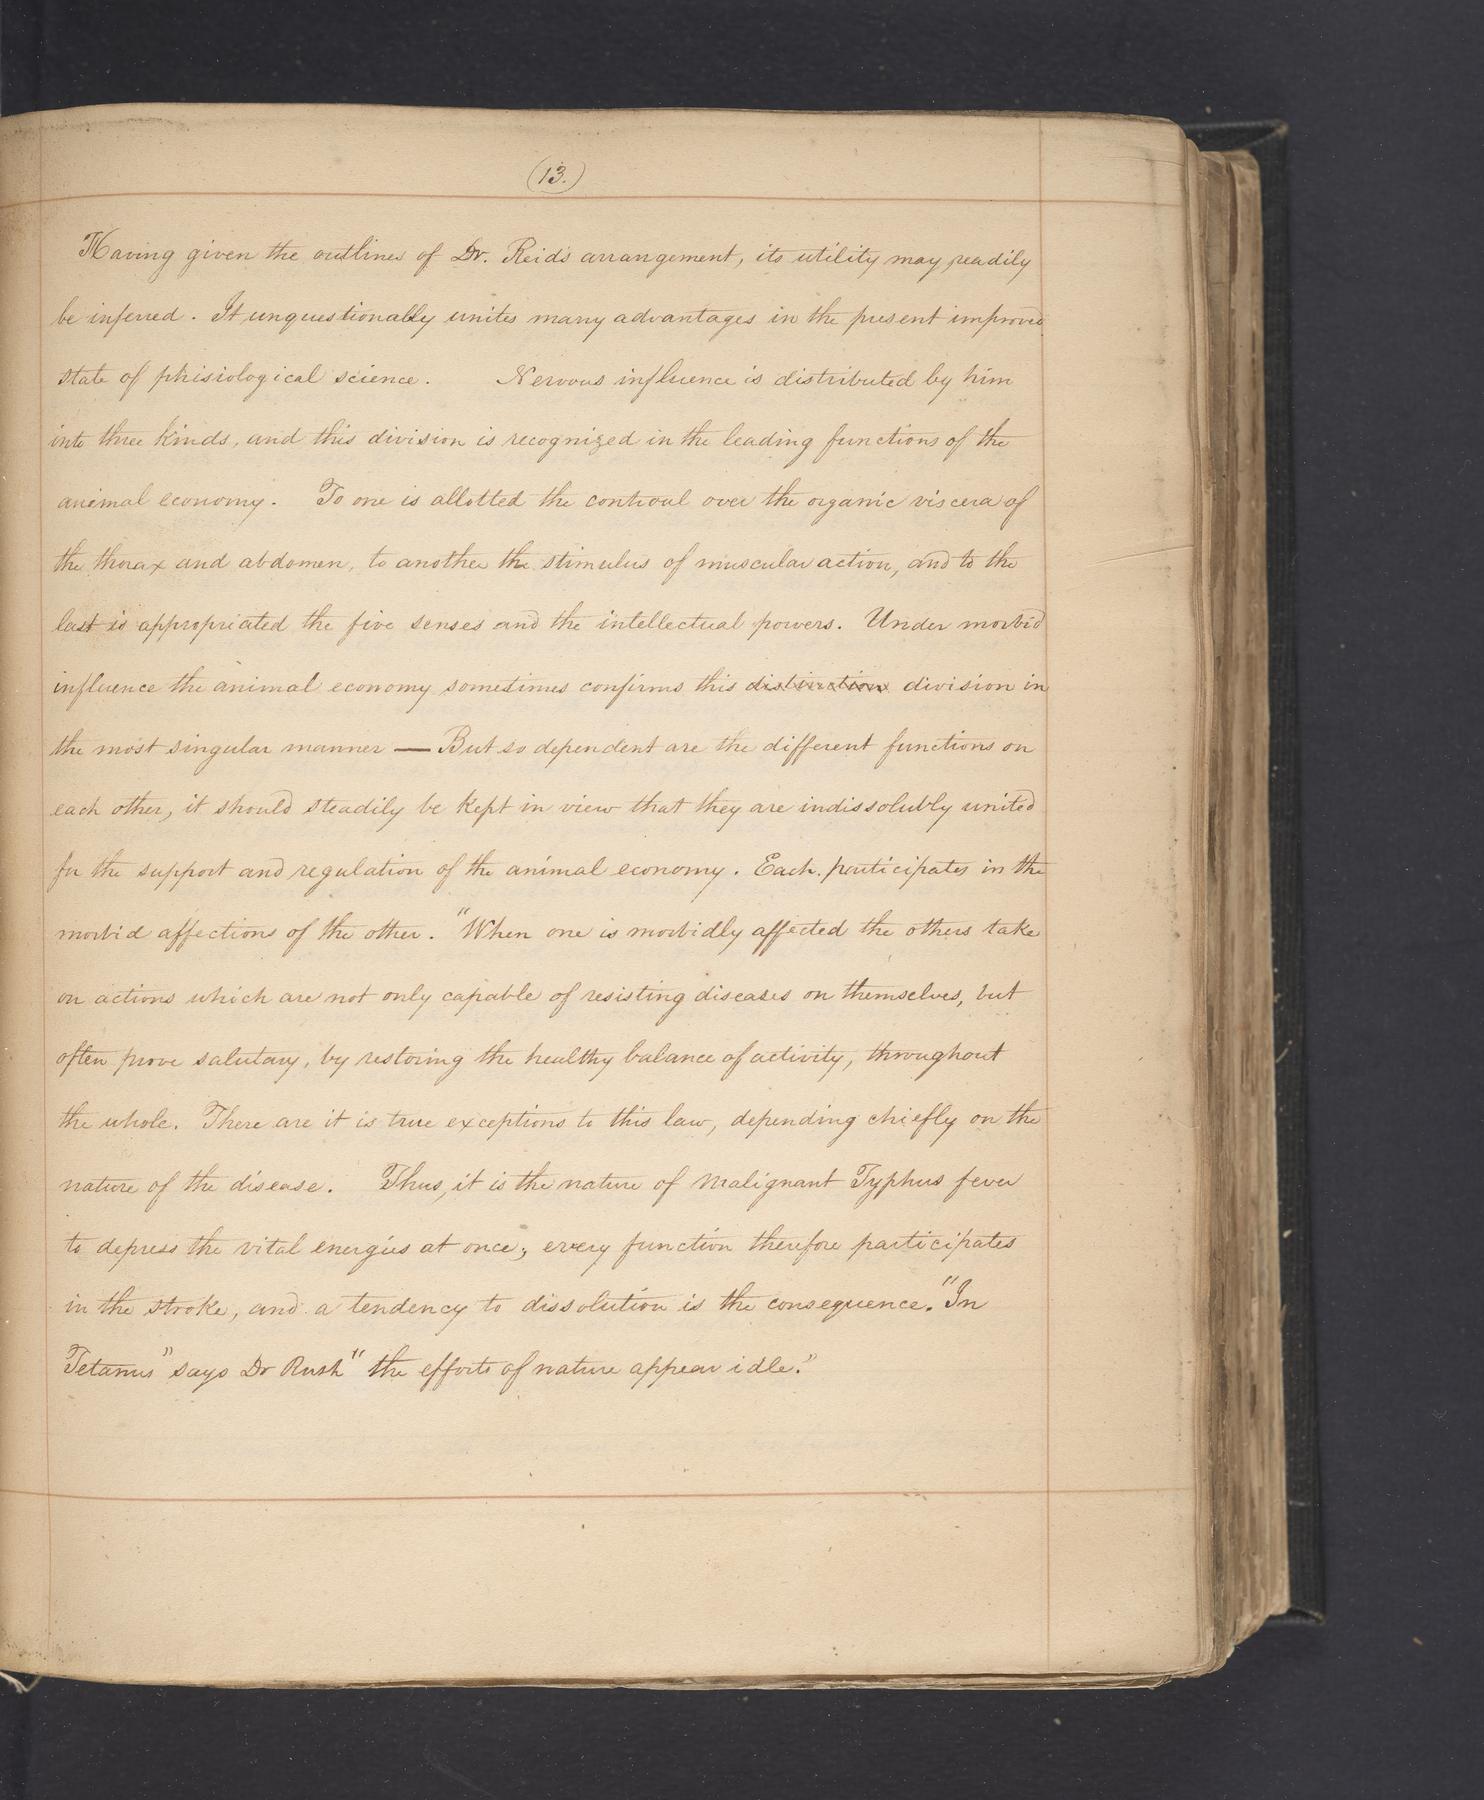 (13.)
Having given the outlines of Dr. Reids arrangement, its utility may readily
be inferred. It unquestionably unites many advantages in the present improved
state of phisiological science. Nervous influence is distributed by him
into three kinds, and this division is recognized in the leading functions of the
animal economy. To one is allotted the controul over the organic viscera of
the thorax and abdomen, to another the stimulus of muscular action, and to the
last is appropriated the five senses and the intellectual powers. Under morbid
influence the animal economy sometimes confirms this distinction division in
the most singular manner — But so dependent are the different functions on
each other, it should steadily be kept in view that they are indissolubly united
for the support and regulation of the animal economy. Each participates in the
morbid affections of the other. "When one is morbidly affected the others take
on actions which are not only capable of resisting diseases on themselves, but
often prove salutary, by restoring the healthy balance of activity, throughout
the whole. There are it is true exceptions to this law, depending chiefly on the
nature of the disease. Thus, it is the nature of Malignant Typhus fever
to depress the vital energies at once; every function therefore participates
in the stroke, and a tendency to dissolution is the consequence. "In
Tetanus" says Dr Rush "the efforts of nature appear idle."